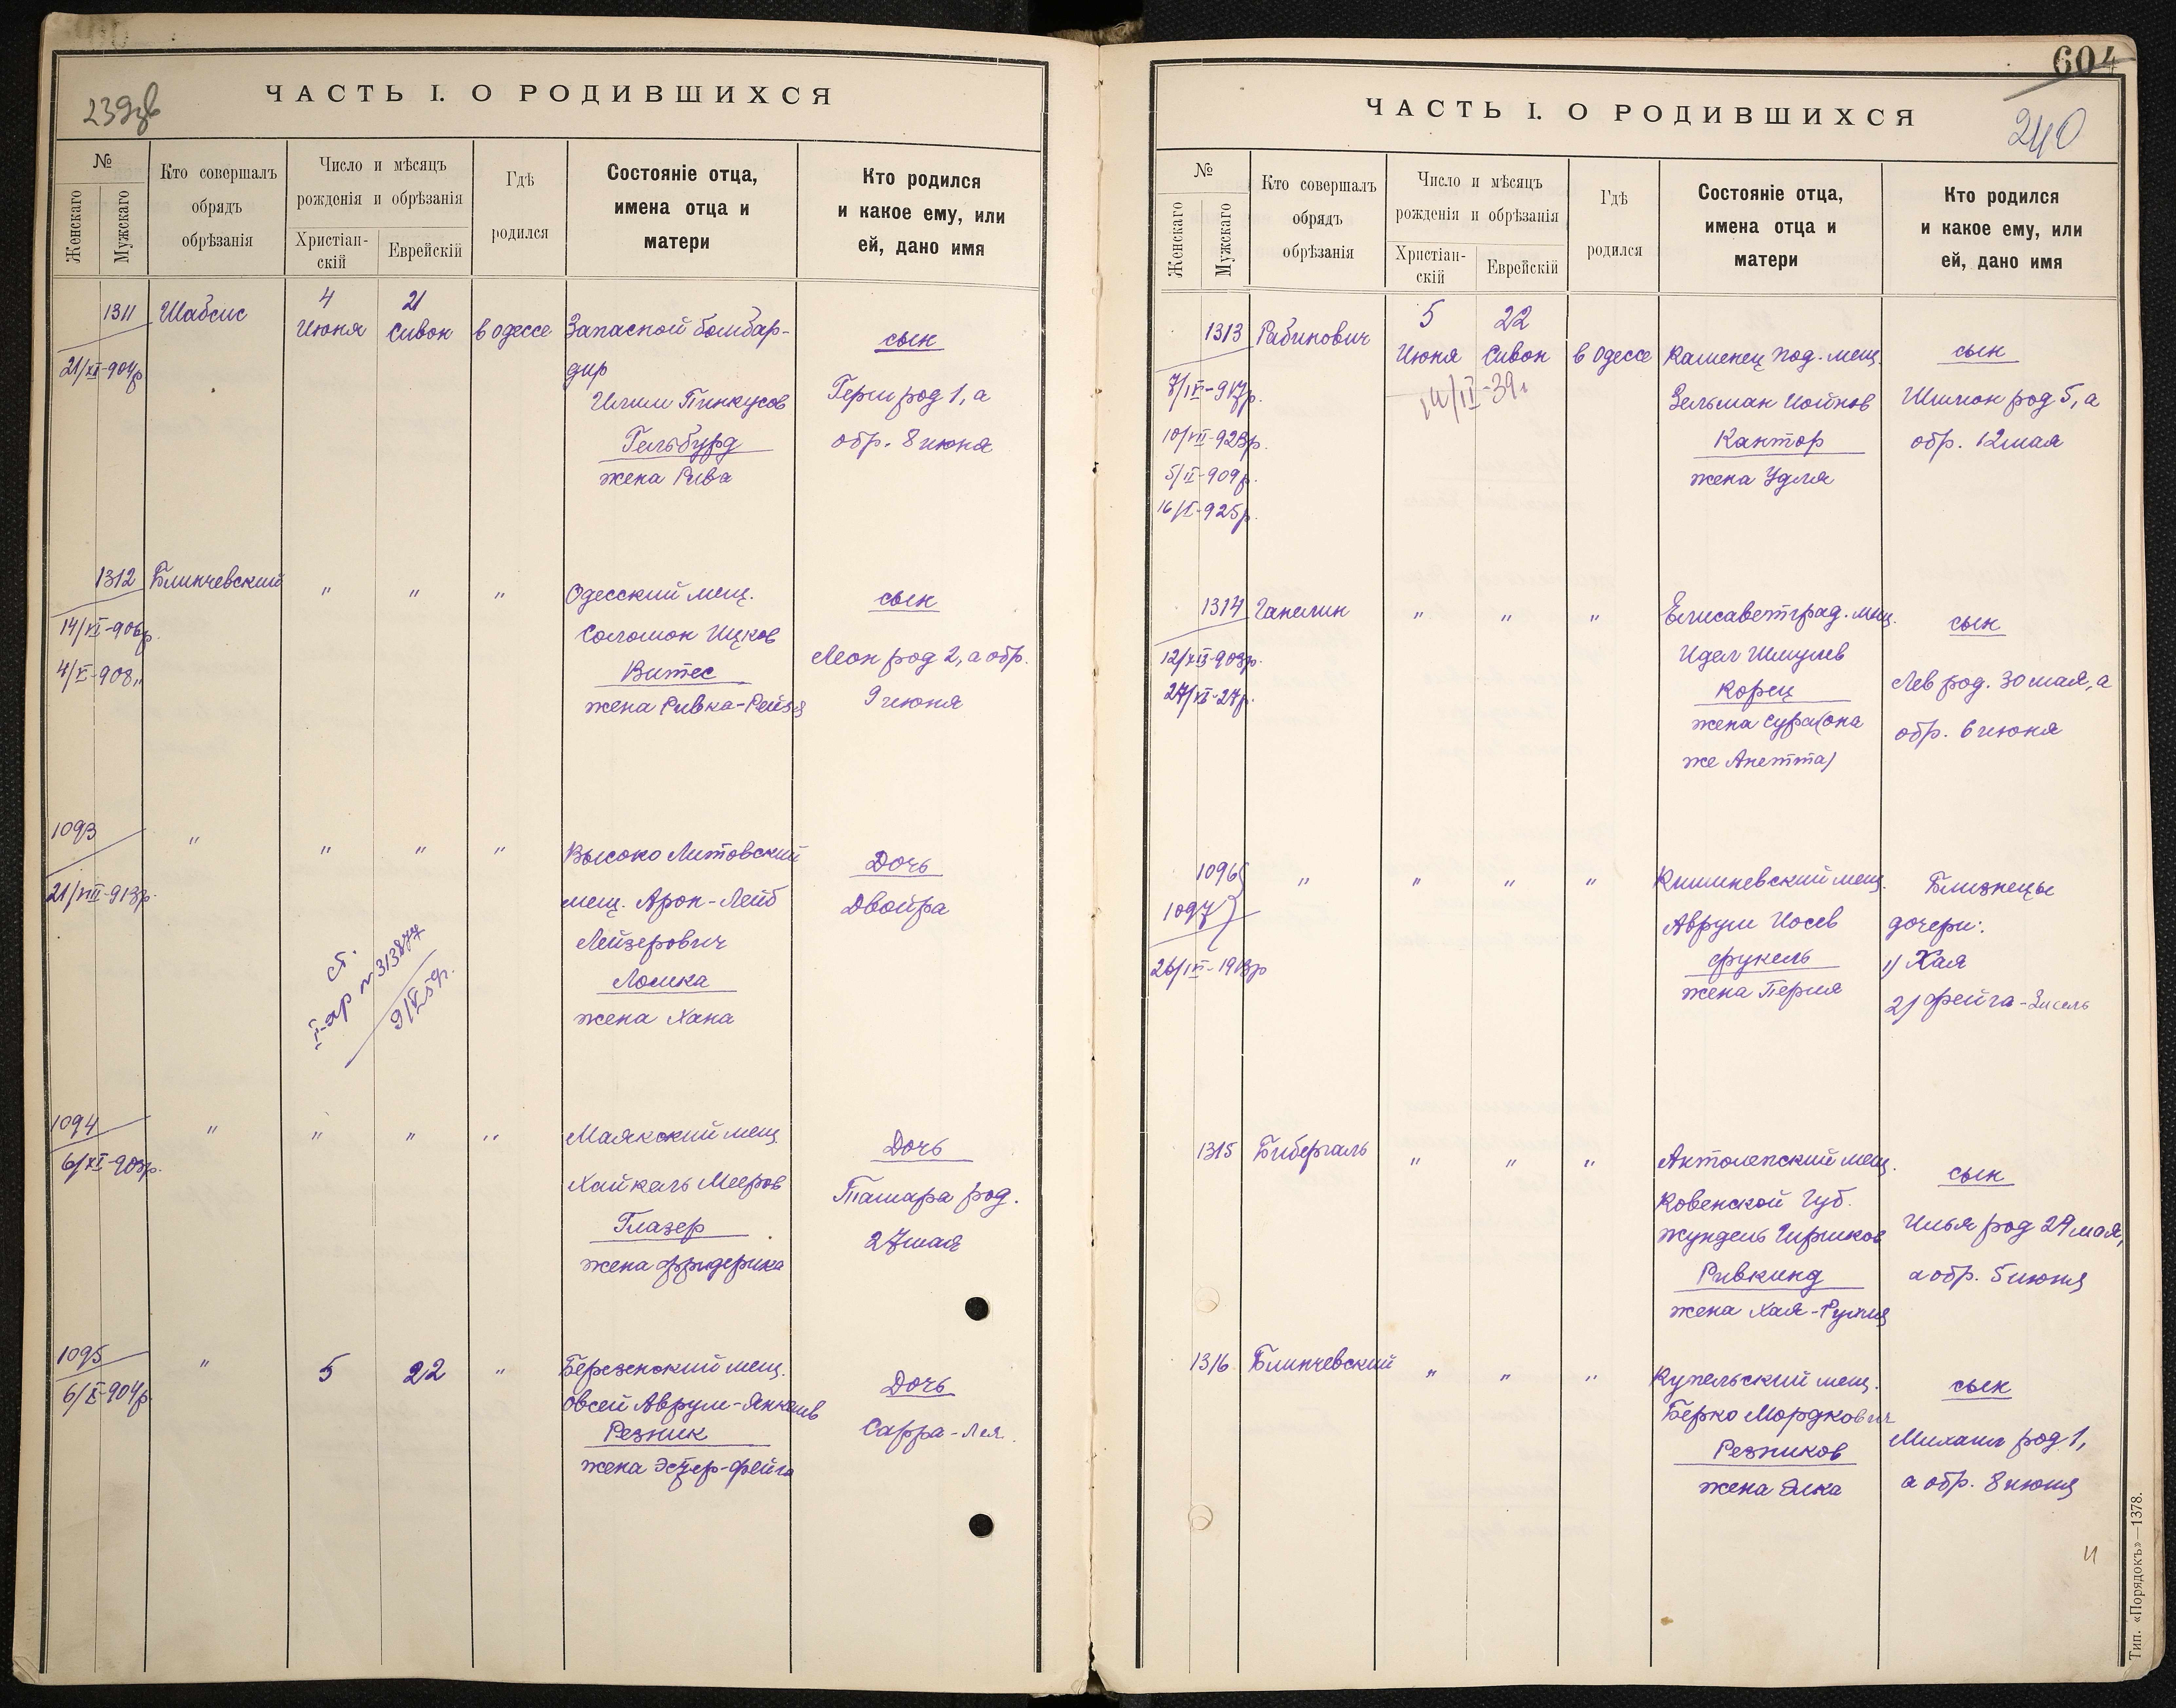 239об
ЧАСТЬ I. О РОДИВШИХСЯ
№
Женскаго
Мужскаго
Кто совершалъ
обрядъ
обрѣзанія
Число и мѣсяцъ
рожденія и обрѣзанія
Христіан-
скій
Еврейскій
Гдѣ
родился
Состояніе отца,
имена отца и
матери
Кто родился
и какое ему, или
ей, дано имя
1311
21/XI-904р
Шабсис
4
Июня
21
Сивон
в Одессе
Запасной бомбар-
дир
Пинкусов
Гельбурд
жена Рива
сын
Герш род 1, а
обр. 8 июня
1312
14/VI-906р.
4/X-908"
Блинчевский
"
"
"
Одесский мещ.
Соломон Ицков
Витес
жена Ривка-Рейзя
сын
Леон род 2, а обр.
9 июня
1093
21/VIII-913р.
"
"
"
"
Высоко Литовский
мещ. Арон-Лейб
Лейзерович
Ломка
жена Хана
Дочь
Двойра
ст.
№ 313877
1094
6/XI-903р.
"
"
"
"
Маякский мещ
Хайкель Мееров
Глазер
жена Фридерика
Дочь
Тамара род.
27 мая
1095
6/X-904р.
"
5
22
"
Березенский мещ.
Овсей Аврум-Янкелев
Резник
жена Эстер-Фейга
Дочь
Сарра-Лея.
604
240
ЧАСТЬ I. О РОДИВШИХСЯ
№
Женскаго
Мужскаго
Кто совершалъ
обрядъ
обрѣзанія
Число и мѣсяцъ
рожденія и обрѣзанія
Христіан-
скій
Еврейскій
Гдѣ
родился
Состояніе отца,
имена отца и
матери
Кто родился
и какое ему, или
ей, дано имя
1313
7/IV-917р.
10/VII-923р.
5/II-909р.
16/V-925р.
Рабинович
5
Июня
22
Сивон
в Одессе
Каменец под. мещ.
Зельман Иойнов
Кантор
жена Удля
сын
Шимон род 5, а
обр. 12 мая
14/II-39г
1314
12/XII-903р.
27/VI-27р.
Ганелин
"
"
"
Елисаветград. мещ.
Идел Шмулев
Корец
жена Сура (она
же Анетта)
сын
Лев род. 30 мая, а
обр. 6 июня
1096
1097
26/IV-1913р
"
"
"
"
Кишиневский мещ.
Аврум Иосев
Фукель
жена Перля
Близнецы
дочери:
1) Хая
2) Фейга-Зисель
1315
Бибергаль
"
"
"
Антолепский мещ.
Ковенской Губ.
Жундель Гиршков
Ривкинд
жена Хая-Рухля
сын
Илья род 29 мая,
а обр. 5 июня
1316
Блинчевский
"
"
"
Купельский мещ.
Берко Мордкович
Резников
жена Элка
сын
Михаил род 1,
а обр. 8 июня
Тип. «Порядокъ»—1378.